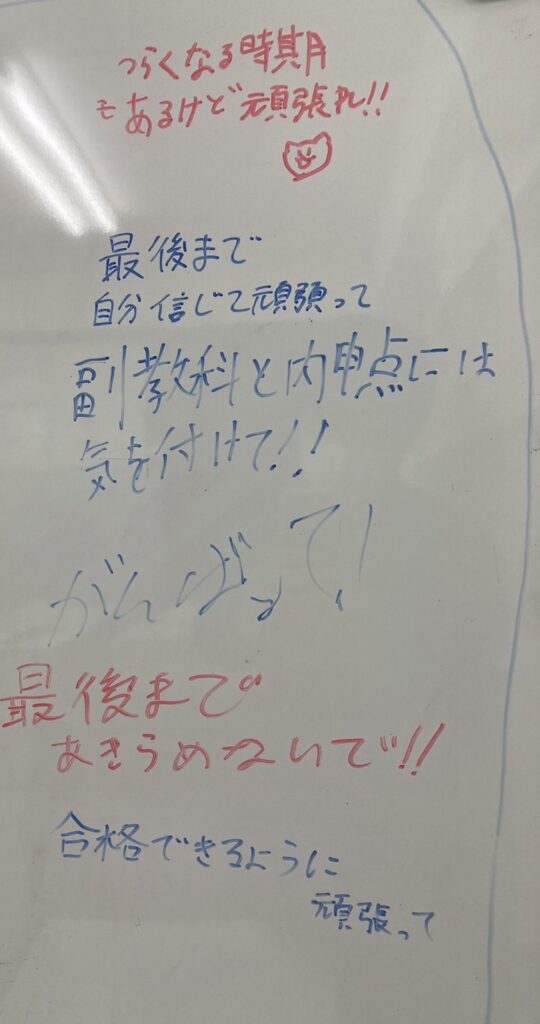 つらくなる時期
もあるけど頑張れ!!
最後まで
自分信じて頑張って
副教科と内申点には
気を付けて!!
がんばって!
最後まで
あきらめないで!!
合格できるように
頑張って